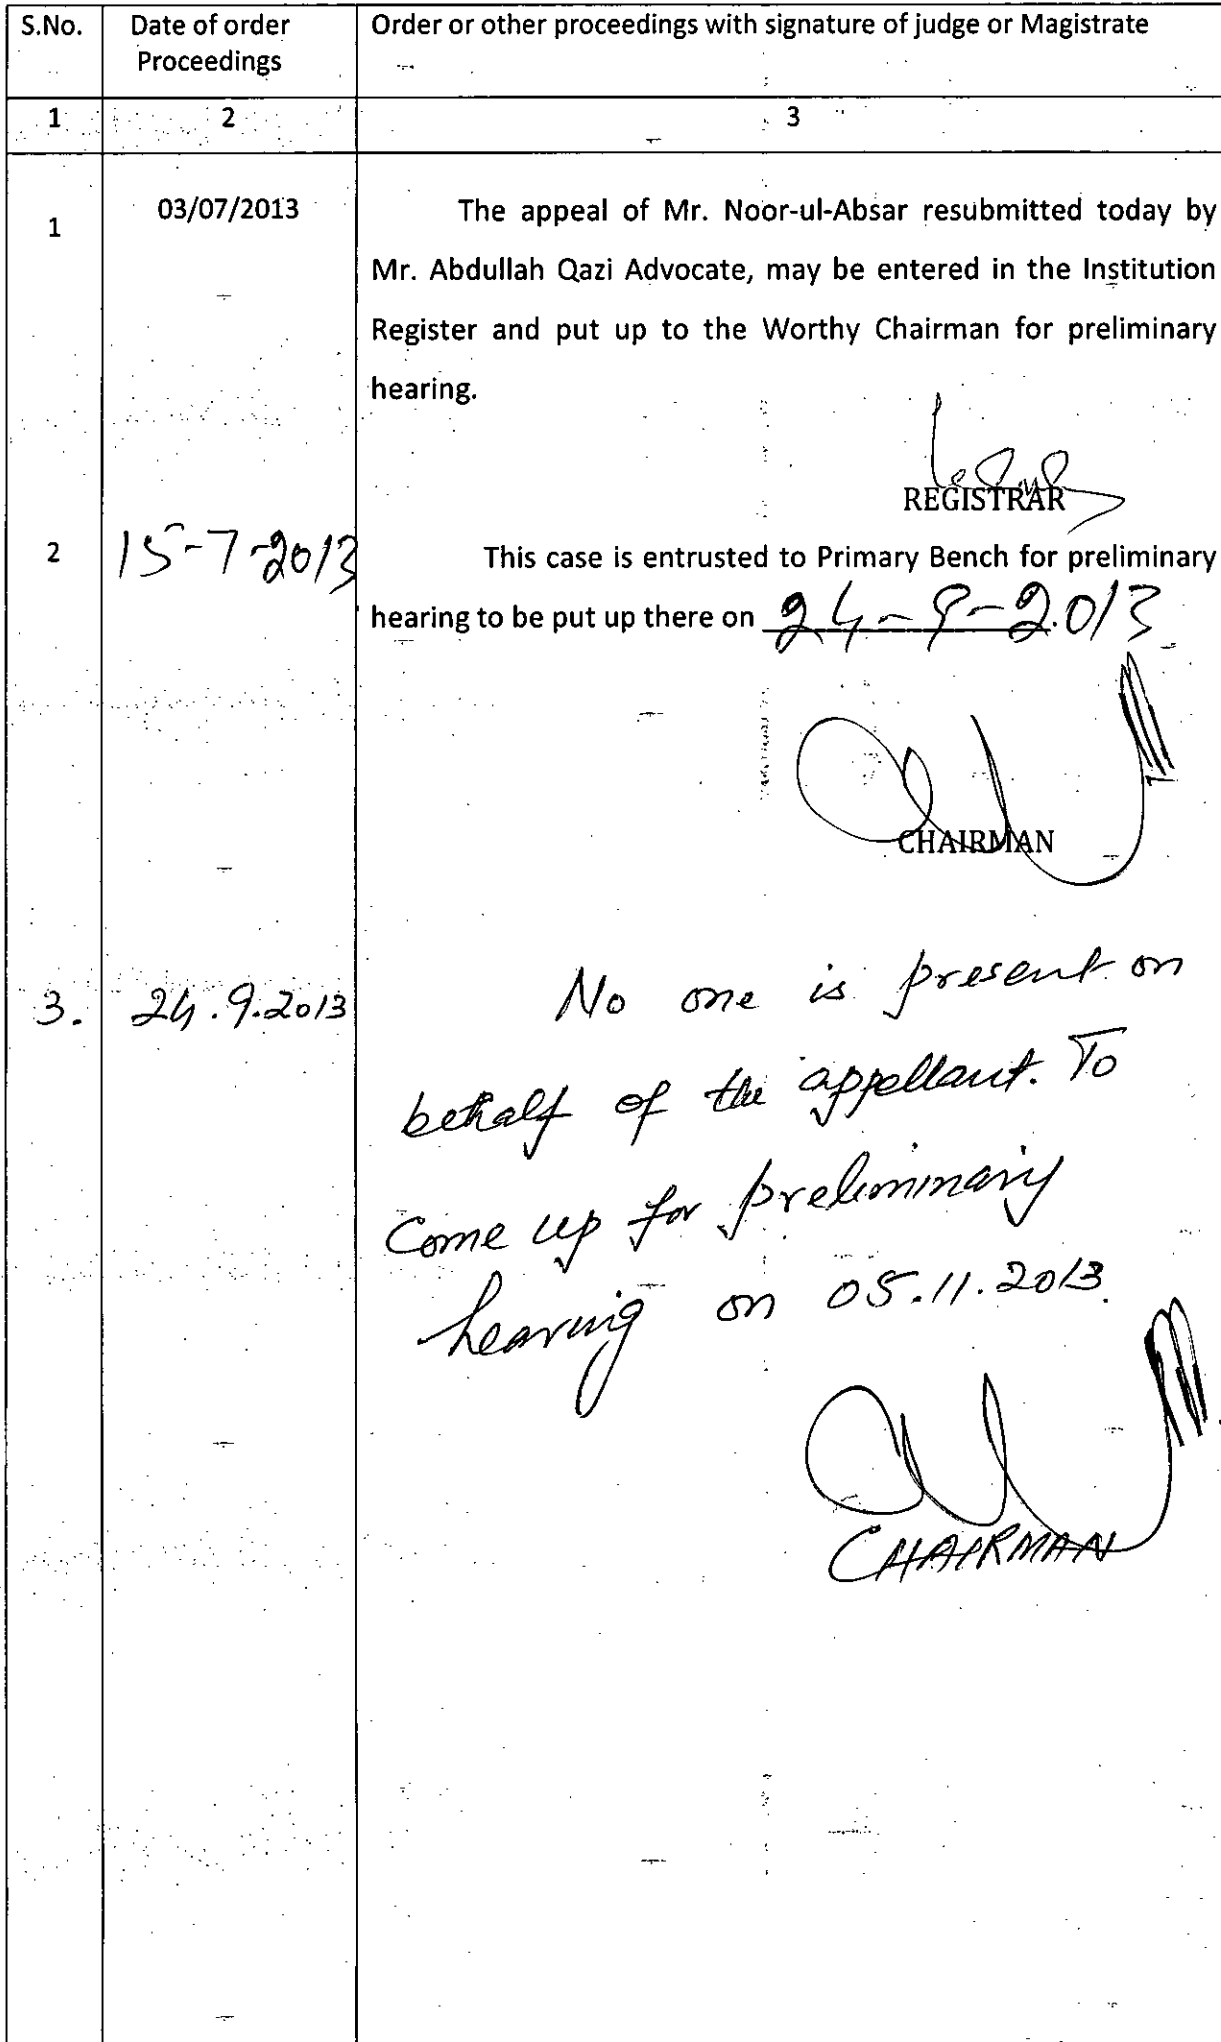 S.No.
Date of order
Proceedings
Order or other proceedings with signature of judge or Magistrate
1
2
3
1
03/07/2013
The appeal of Mr. Noor-ul-Absar resubmitted today by
Mr. Abdullah Qazi Advocate, may be entered in the Institution
Register and put up to the Worthy Chairman for preliminary
hearing.
REGISTRAR
2
15-7-2013
This case is entrusted to Primary Bench for preliminary
hearing to be put up there on 24-9-2013
CHAIRMAN
3.
24.9.2013
No one is present on
behalf of the appellant. To
Come up for preliminary
hearing on 05.11.2013.
CHAIRMAN